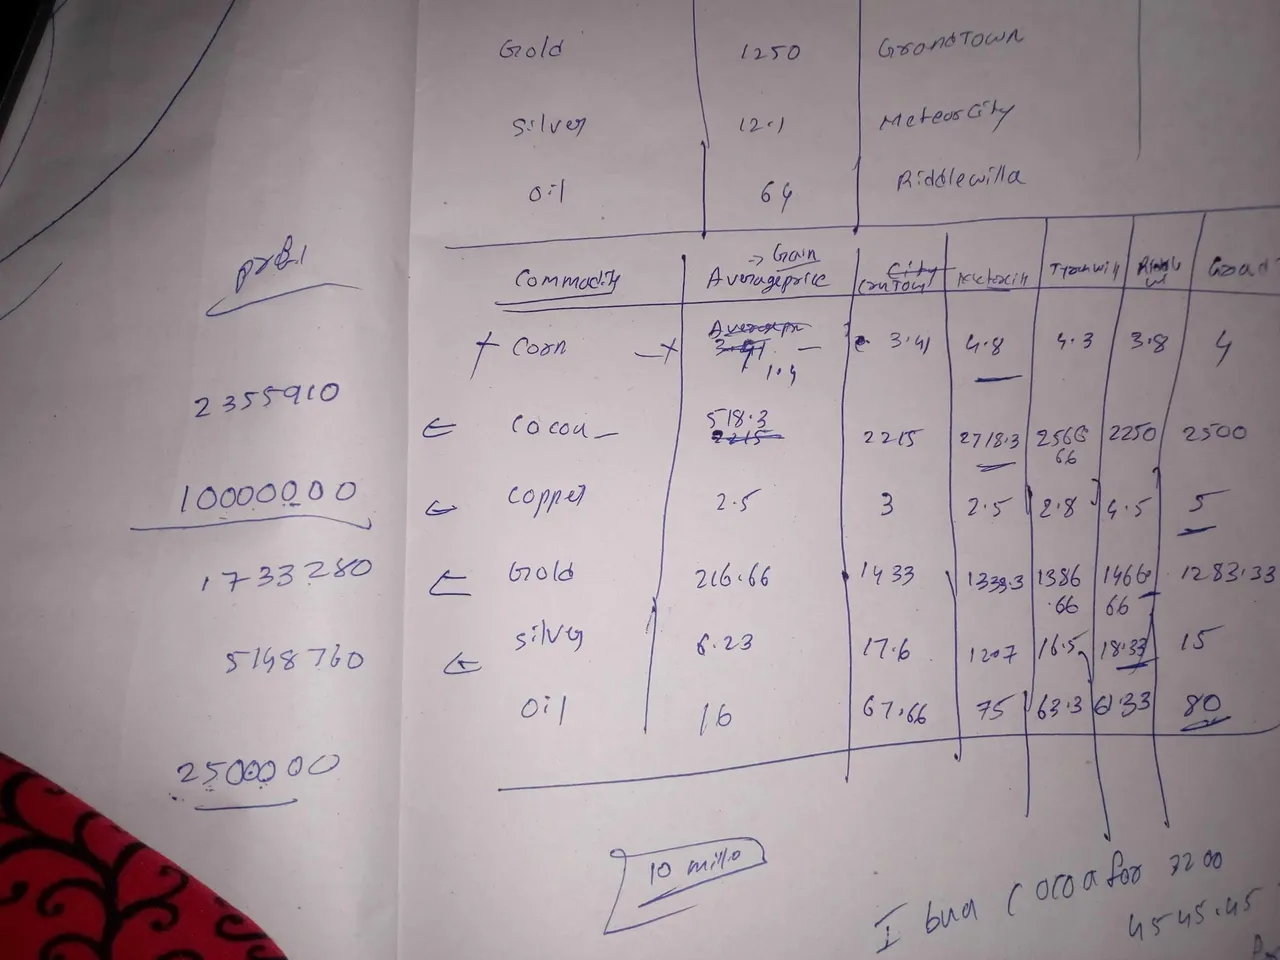 Gold 1250 GrandTown
Silver 12.1 MeteorCity
Oil 64 Riddlewilla
Profit
→ Gain
Commodity Averageprice City
Corn 3.41 4.8 4.3 3.8 4
1.4
2355910
518.3
Cocoa 2215 2215 2718.3 2566 2250 2500
66
10000000
Copper 2.5 3 2.5 2.8 4.5 5
1733280
Gold 216.66 1433 1339.3 1386 1466 1283.33
.66 66
5148760
Silver 6.23 17.6 1207 16.5 18.33 15
Oil 16 67.66 75 63.3 61.33 80
2500000
10 millo
I bua Cocoa for 7200
4545.45